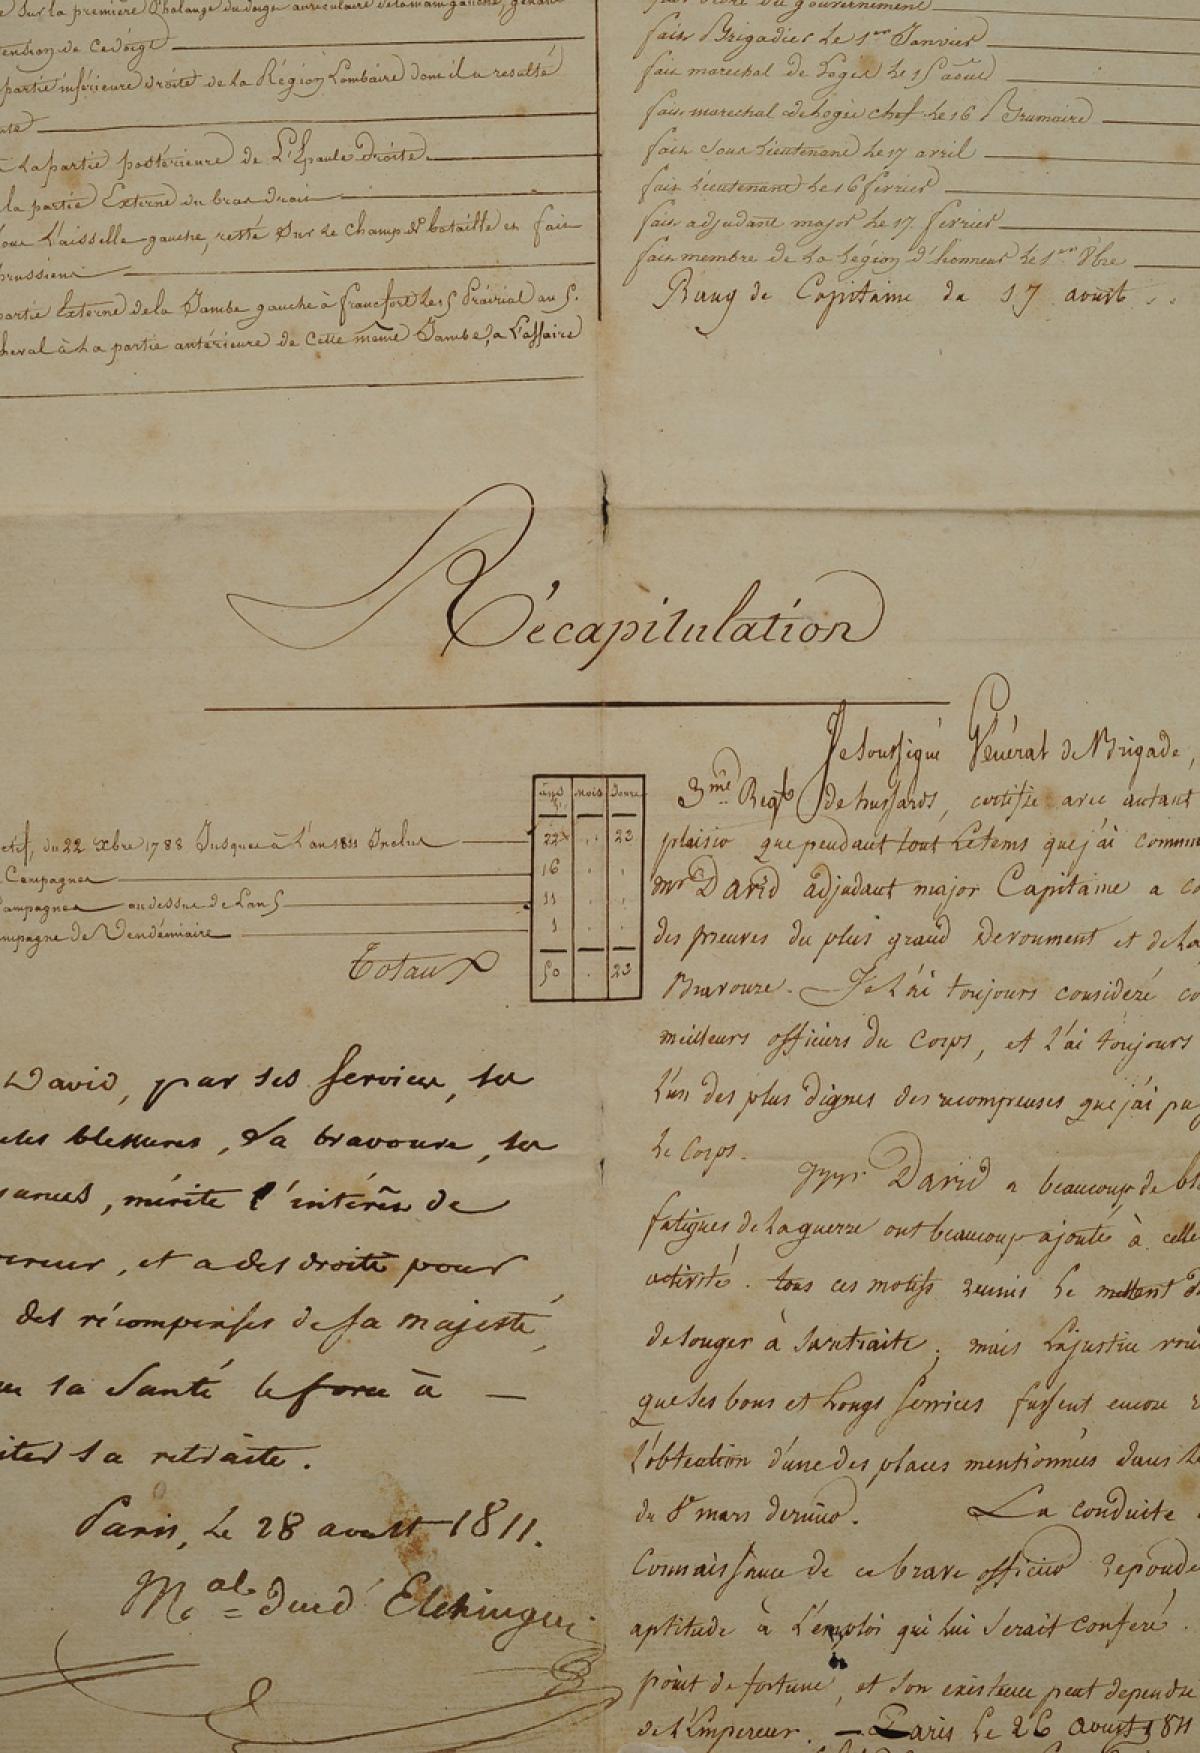 Sur la première Phalange du doigt auriculaire de la main gauche, gênant
tension de ce doigt
partie inférieure droite de la Région Lombaire dont il a resulté
la partie postérieure de L'Epaule Droite
la partie Externe du bras droit
Sous L'aisselle gauche, resté Sur Le champ de bataille et fait
prussiens
partie Externe de la Jambe gauche à francfort Le 5 Prairial an 5.
cheval à La partie antérieure de Cette même Jambe, a L'affaire
par ordre du gouvernement
fait Brigadier Le 1er Janvier
fait marechal de Logis Le 15 aout
fait marechal de Logis chef Le 16 Brumaire
fait Sous Lieutenant Le 17 avril
fait Lieutenant Le 16 fevrier
fait adjudant major Le 17 fevrier
fait membre de La Légion d'honneur Le 1er 8bre
Rang de Capitaine du 17 aoust
Récapitulation
ans mois Jours
du 22 Xbre 1788 Jusques à L'an 1811 Inclus 22 23
Campagnes 16
Campagnes au dessus de L'an 5 11
Campagne de Vendémiaire 1
Totaux 50 23
David, par ses services, ses
blessures, sa bravoure, sa
mérite l'intérêt de
et a des droits pour
des récompenses de sa majesté,
sa Santé le force à
sa retraite.
Paris, le 28 aoust 1811.
Mal Duc d'Elchingen
Je soussigné Général de Brigade,
3me Regt de hussards, certifie avec autant
plaisir que pendant tout le tems que j'ai
Mr David adjudant major Capitaine a
des preuves du plus grand devoument et de la
Bravoure. Je l'ai toujours consideré
meilleurs officiers du Corps, et l'ai toujours
l'un des plus dignes des recompenses que j'ai pu
le Corps.
David a beaucoup de
fatigues de la guerre ont beaucoup ajouté à celle
activité. tous ces motifs reunis le mettent
de songer à sa retraite; mais la justice
que ses bons et longs services fussent encore
l'obtention d'une des places mentionnées dans
du 8 mars dernier. La conduite
Connaissance de ce brave officier
aptitude à l'emploi qui lui serait conferé.
point de fortune, et son existence peut dependre
de l'Empereur. Paris le 26 aoust 1811